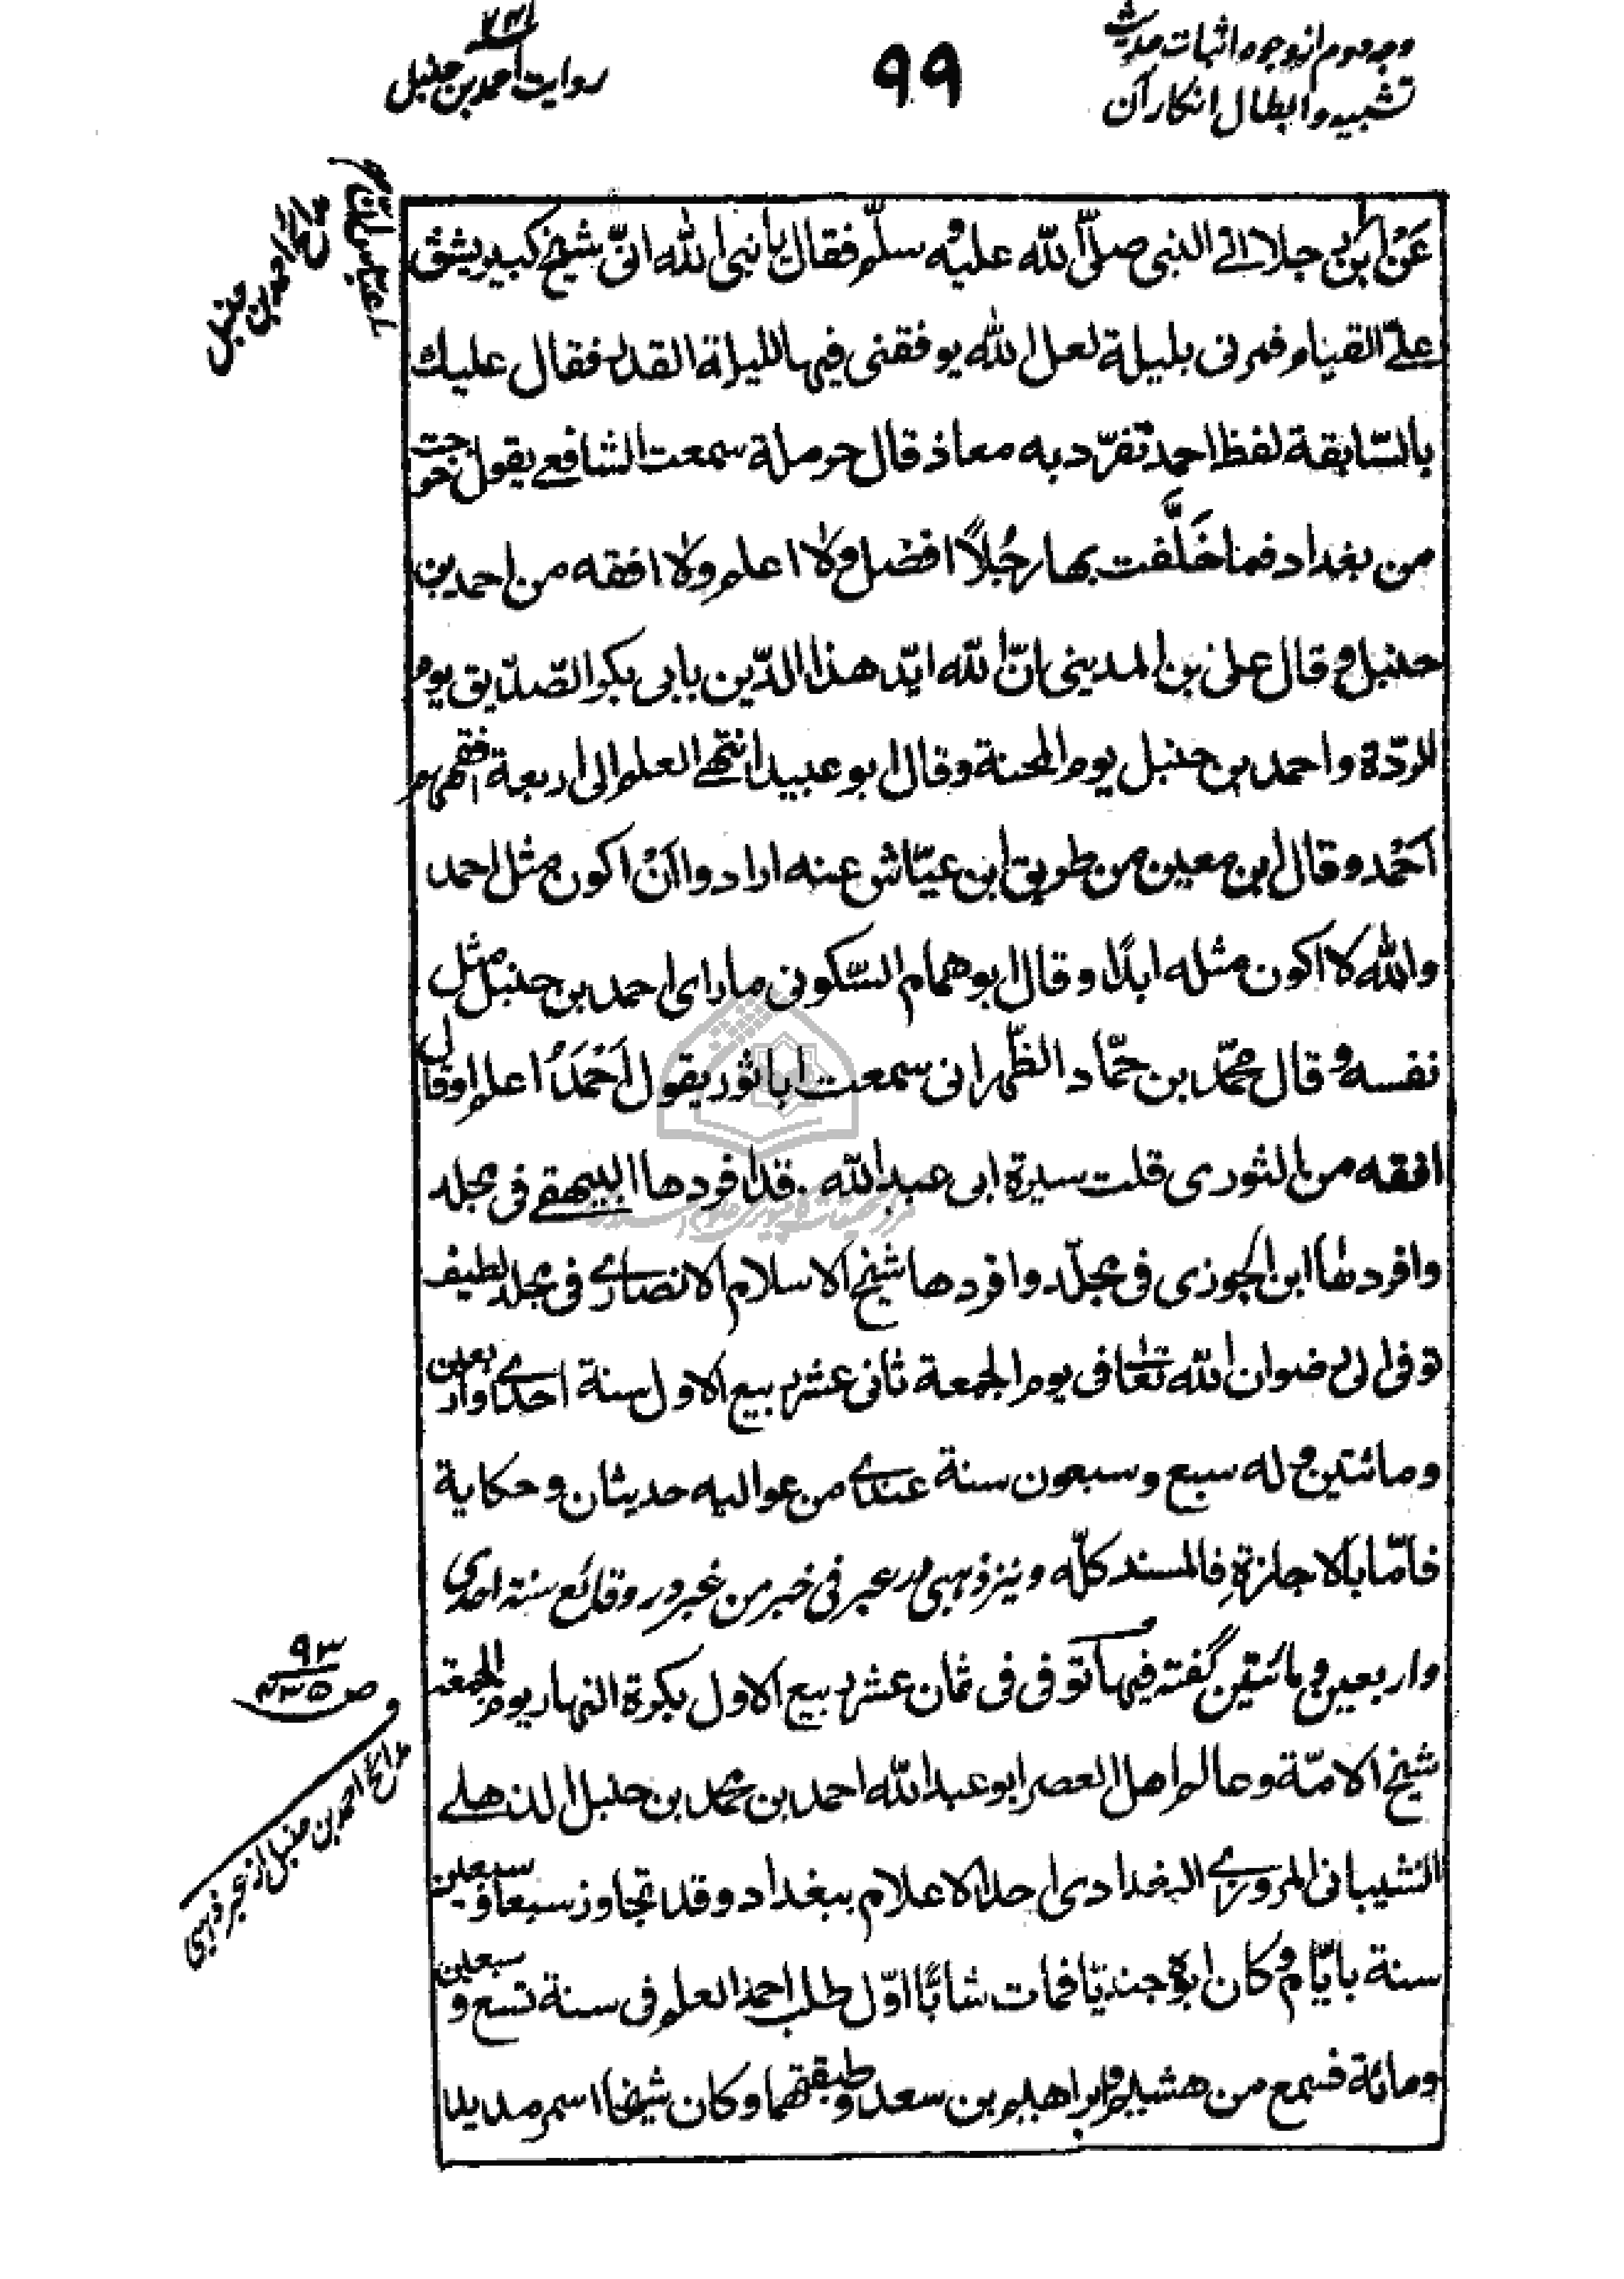 وجه دوم از وجوه اثبات حدیث
تشبیه و ابطال انکار آن
۹۹
روایت احمد بن حنبل
مدائح احمد بن حنبل
عَنْ ابن رجلا اتى النبى صلّى الله عليه و سلّم فقال يا نبى الله انّى شيخ كبير يشقّ
علىّ القيام فمرنى بليلة لعل الله يوفقنى فيها لليلة القدر فقال عليك
بالسّابعة لفظ احمد تفرّد به معاذ قال حرملة سمعت الشافعى يقول خرجت
من بغداد فما خَلَّفت بها رجُلاً افضل ولا اعلم ولا افقه من احمد بن
حنبل و قال على بن المدينى انّ الله ايّد هذا الدّين بابى بكر الصّدّيق يوم
الردّة و احمد بن حنبل يوم المحنة و قال ابو عبيد انتهى العلم الى اربعة افقههم
اَحْمد و قال ابن معين من طريق ابن عيّاش عنه ارادوا اَنْ اكون مثل احمد
والله لا اكون مثله ابدًا و قال ابو همام السّكونى ما راى احمد بن حنبل مثل
نفسه و قال محمّد بن حمّاد الظّهرانى سمعت ابا ثور يقول اَحْمَدُ اعلم او قال
افقه من الثورى قلت سيرة ابى عبد الله قد افردها البيهقى فى مجلد
و افردها ابن الجوزى فى مجلّد و افردها شيخ الاسلام الانصارى فى مجلد لطيف
توفى الى رضوان الله تعالى فى يوم الجمعة ثانى عشر ربيع الاول سنة احدى و اربعين
و مائتين و له سبع و سبعون سنة عندى من عواليه حديثان و حكاية
فامّا بالاجازةِ فالمسند كلّه و نیز ذهبی در عبر فی خبر من غبر در وقائع سنة احدى
و اربعين و مائتين گفته فيها توفى فى ثمان عشر ربيع الاول بكرة النهار يوم الجمعة
شيخ الامّة و عالم اهل العصر ابو عبد الله احمد بن محمد بن حنبل الذهلى
الشيبانى المروزى البغدادى احد الاعلام ببغداد و قد تجاوز سبعا و سبعين
سنة بايّام و كان ابوه جنديّا فمات شابّا اوّل طلب احمد العلم فى سنة تسع و سبعين
و مائة فسمع من هشيم و ابراهيم بن سعد و طبقتهما و كان شيخا اسمر مديدا
مدائح احمد بن حنبل از عبر ذهبی